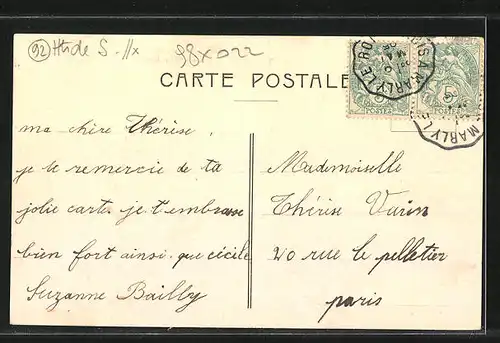 (92) Hts de S. - 11x
98x022
CARTE POSTALE
PARIS A MARLY LE ROI
MARLY L
5
ma chère Thérèse,
je te remercie de ta
jolie carte. je t'embrasse
bien fort ainsi que cécile
Suzanne Bailly
Mademoiselle
Thérèse Varin
20 rue le pelletier
paris